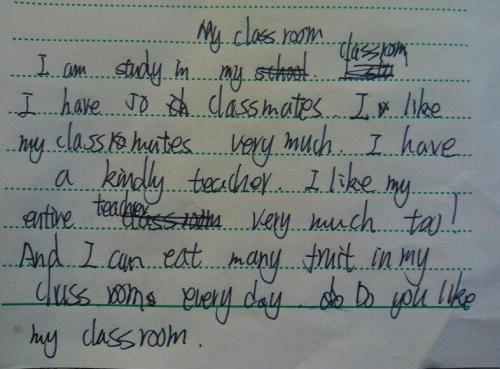 My classroom
I am study in my classroom.
I have 50 classmates. I like
my classmates very much. I have
a kindly teacher. I like my
entire teacher very much too!
And I can eat many fruit in my
class room every day. Do you like
my classroom.